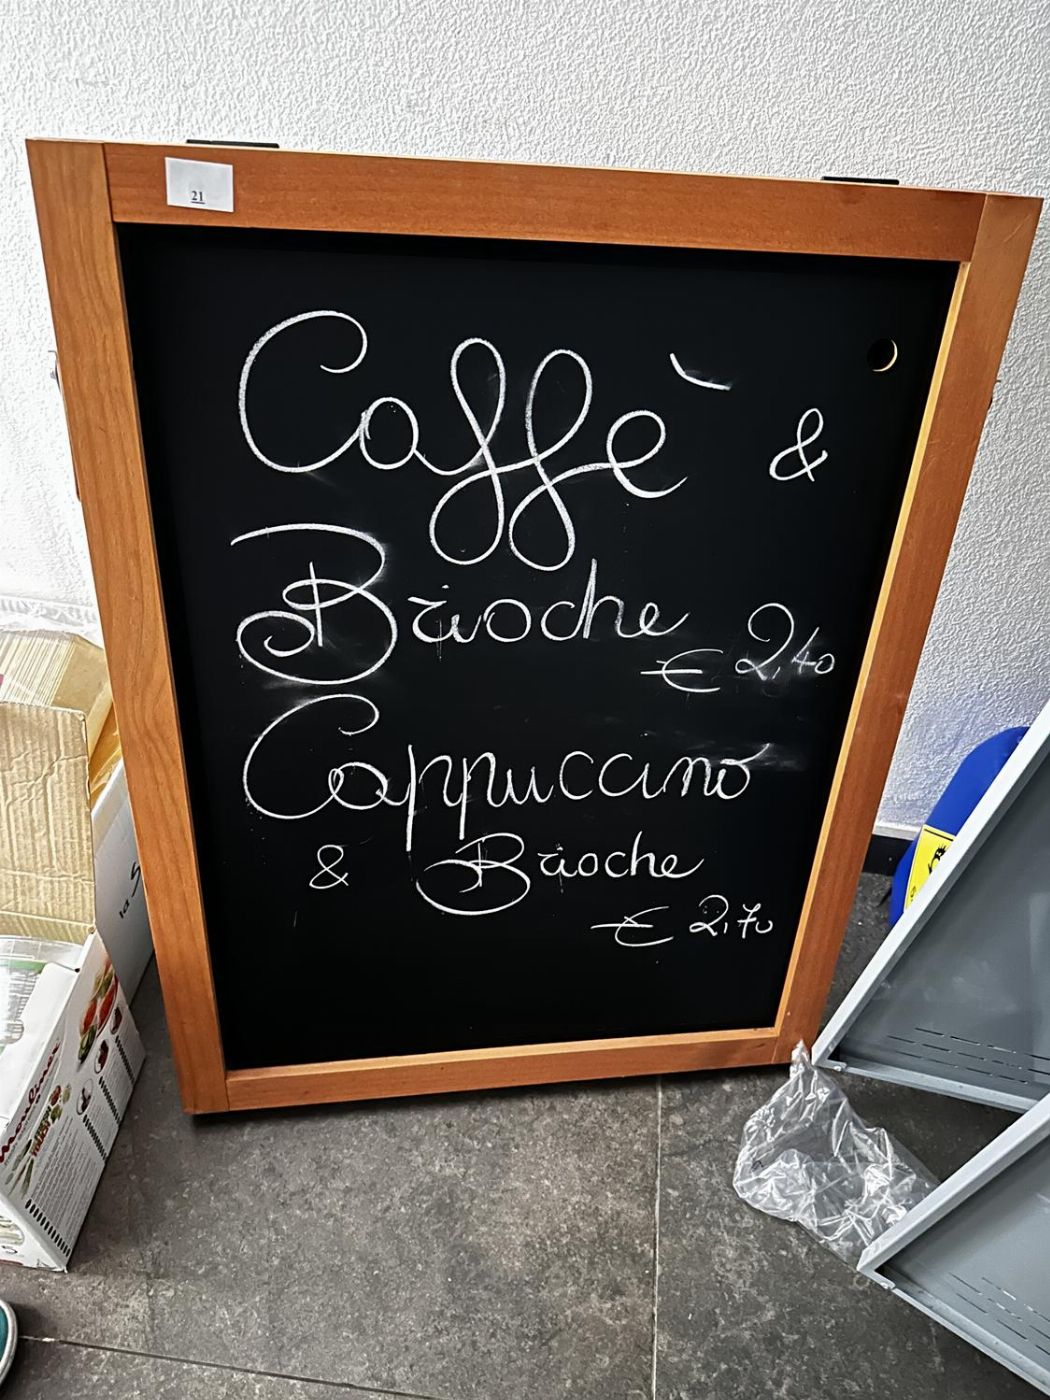 21
Caffè &
Brioche
€ 2,40
Cappuccino
& Brioche
€ 2,70